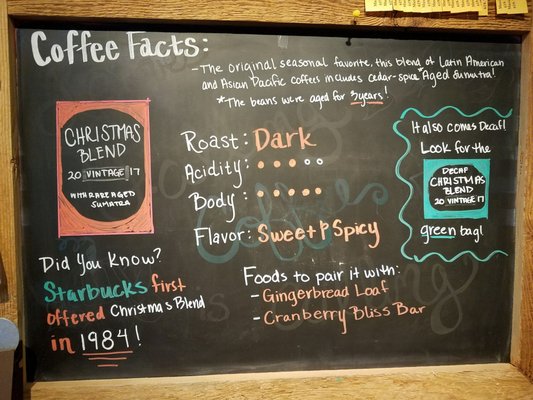 Coffee Facts:
-The original seasonal favorite, this blend of Latin American
and Asian Pacific coffees includes cedar-spice Aged Sumatra!
*The beans were aged for 3 years!
CHRISTMAS
BLEND
20 VINTAGE 17
WITH RARE AGED
SUMATRA
Roast: Dark
Acidity:
Body:
Flavor: Sweet & Spicy
It also comes Decaf!
Look for the
DECAF
CHRISTMAS
BLEND
20 VINTAGE 17
green bag!
Did you Know?
Starbucks first
offered Christmas Blend
in 1984!
Foods to pair it with:
- Gingerbread Loaf
- Cranberry Bliss Bar